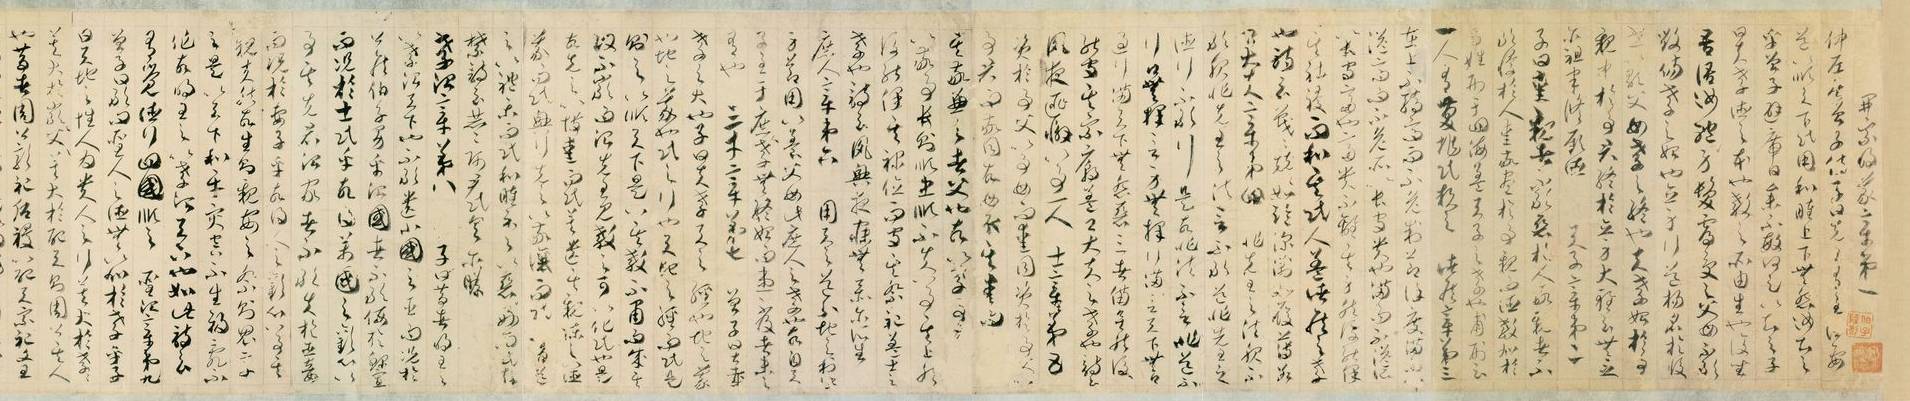 開宗明義章第一
仲尼居曾子侍子曰先王有至德要
道以順天下民用和睦上下無怨汝知之
乎曾子避席曰參不敏何足以知之子
曰夫孝德之本也教之所由生也復坐
吾語汝身體髮膚受之父母不敢
毀傷孝之始也立身行道揚名於後
世以顯父母孝之終也夫孝始於事
親中於事君終於立身大雅云無念
爾祖聿脩厥德 天子章第二
子曰愛親者不敢惡於人敬親者不
敢慢於人愛敬盡於事親而德教加於
百姓刑于四海蓋天子之孝也甫刑云
一人有慶兆民賴之 諸侯章第三
在上不驕高而不危制節謹度滿而不
溢高而不危所以長守貴也滿而不溢所
以長守富也富貴不離其身然後能保
其社稷而和其民人蓋諸侯之孝
也詩云戰戰兢兢如臨深淵如履薄冰
卿大夫章第四 非先王之法服不
敢服非先王之法言不敢道非先王之
德行不敢行是故非法不言非道不
行口無擇言身無擇行言滿天下無口
過行滿天下無怨惡三者備矣然後
能守其宗廟蓋卿大夫之孝也詩云
夙夜匪懈以事一人 士章第五
資於事父以事母而愛同資於事父以
事君而敬同故母取其愛而
君取其敬兼之者父也故以孝事君則忠
以敬事長則順忠順不失以事其上然
後能保其祿位而守其祭祀蓋士之
孝也詩云夙興夜寐無忝爾所生
庶人章第六 用天之道分地之利謹
身節用以養父母此庶人之孝也故自天
子至于庶人孝無終始而患不及者未之
有也 三才章第七 曾子曰甚哉
孝之大也子曰夫孝天之經也地之義
也民之行也天地之經而民是
則之則天之明因地之利以順天下是以其教不肅而成其
政不嚴而治先王見教之可以化民也是
故先之以博愛而民莫遺其親陳之以德
義而民興行先之以敬讓而民不爭導
之以禮樂而民和睦示之以好惡而民知
禁詩云赫赫師尹民具爾瞻
孝治章第八 子曰昔者明王之
以孝治天下也不敢遺小國之臣而況於
公侯伯子男乎故得萬國之懽心以事其先王治國者不敢侮於鰥寡
而況於士民乎故得百姓之懽心以
事其先君治家者不敢失於臣妾
而況於妻子乎故得人之懽心以事其
親夫然故生則親安之祭則鬼享
之是以天下和平災害不生禍亂不
作故明王之以孝治天下也如此詩云
有覺德行四國順之 聖治章第九
曾子曰敢問聖人之德無以加於孝乎子
曰天地之性人為貴人之行莫大於孝孝
莫大於嚴父嚴父莫大於配天則周公其人
也昔者周公郊祀后稷以配天宗祀文王